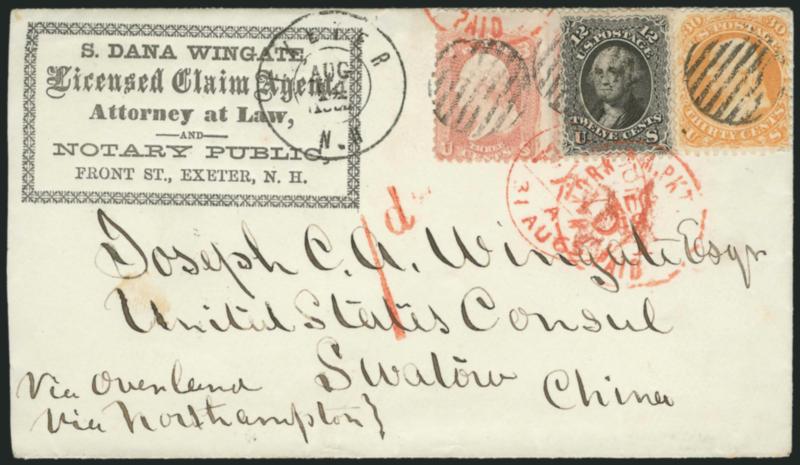 S. DANA WINGATE
Licensed Claim Agent
Attorney at Law,
AND
NOTARY PUBLIC,
FRONT ST., EXETER, N. H.
EXETER
AUG
14
N.H
PAID
U THREE CENTS S
12 U.S. POSTAGE 12
U TWELVE CENTS S
30 U.S. POSTAGE 30
U THIRTY CENTS S
YORK AM. PKT
31 AUG
PAID
1d
Joseph C. A. Wingate Esqr
United States Consul
Swatow
China
Via Overland
Via Northampton}